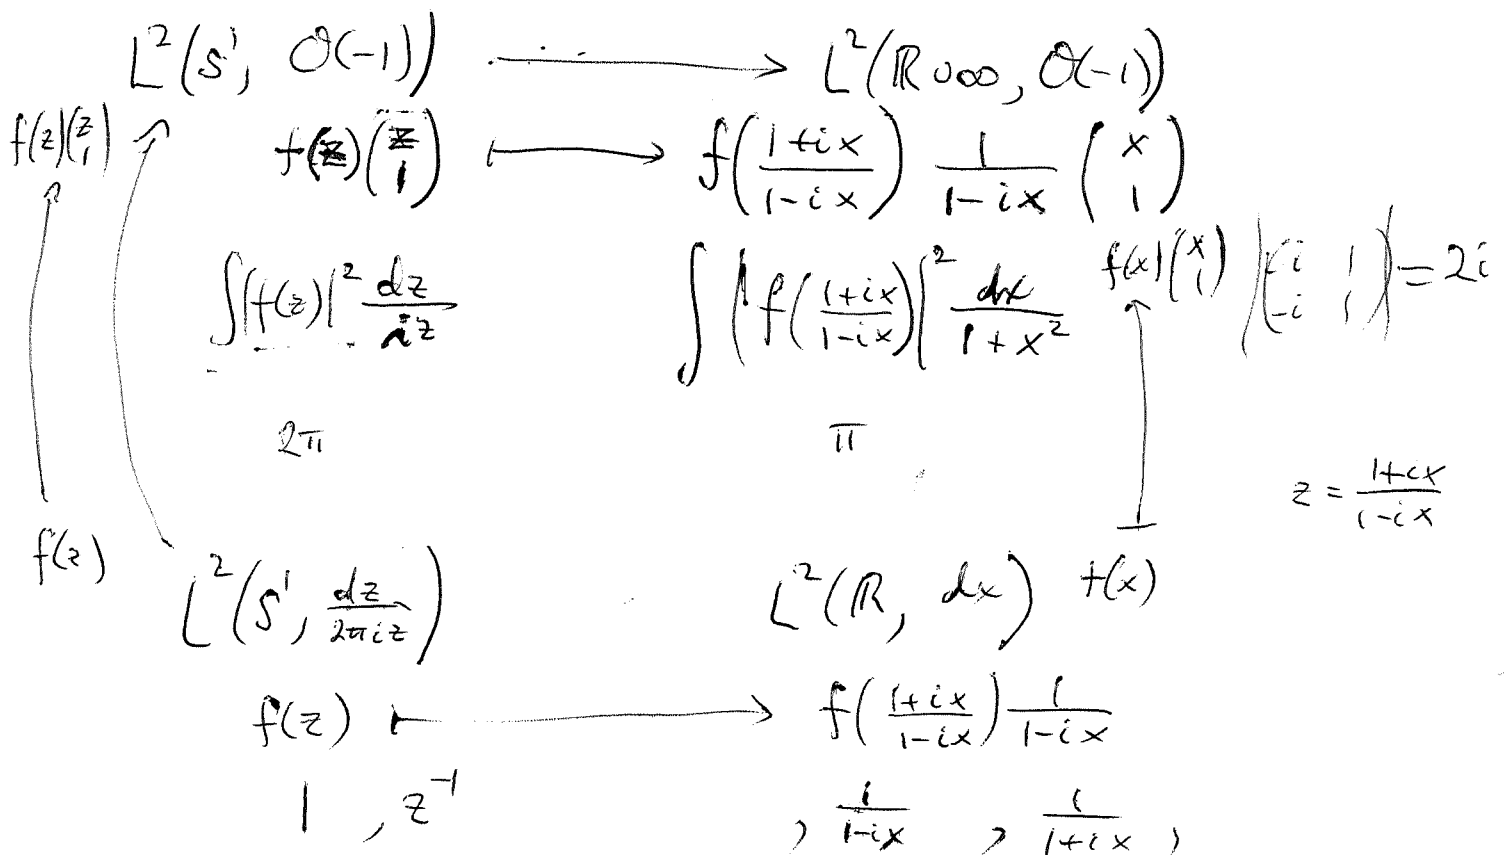 L²(S¹, O(-1)) ⟶ L²(ℝ∪∞, O(-1))
f(z)(z 1) f(z)(z 1) ⟼ f((1+ix)/(1-ix)) 1/(1-ix) (x 1)
∫|f(z)|² dz/iz ∫|f((1+ix)/(1-ix))|² dx/(1+x²) f(x)(x 1) |i 1 -i 1| = 2i
2π π
z = (1+ix)/(1-ix)
f(z) L²(S¹, dz/2πiz) L²(ℝ, dx) f(x)
f(z) ⟼ f((1+ix)/(1-ix)) 1/(1-ix)
1 , z⁻¹ , 1/(1-ix) , 1/(1+ix) ,